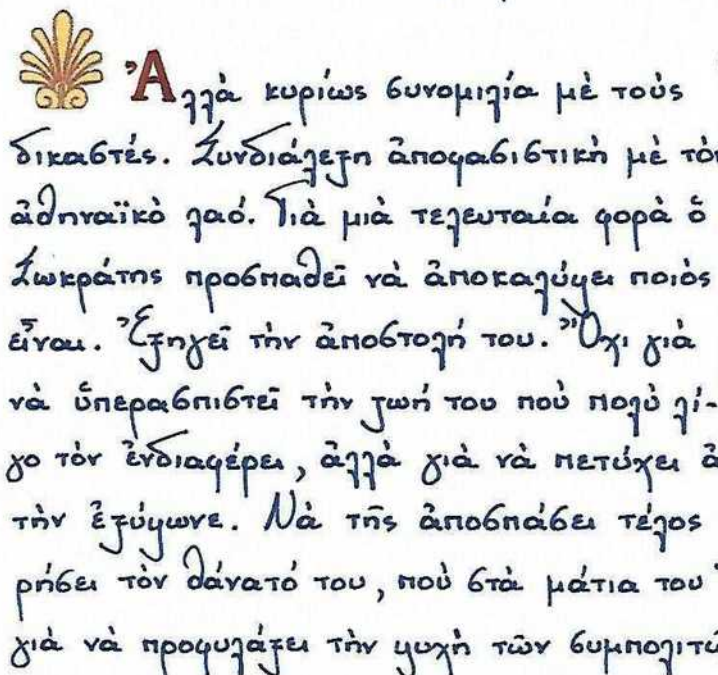 Ἀλλὰ κυρίως συνομιλία μὲ τοὺς
δικαστές. Συνδιάλεξη ἀποφασιστικὴ μὲ τὸν
ἀθηναϊκὸ λαό. Γιὰ μιὰ τελευταία φορὰ ὁ
Σωκράτης προσπαθεῖ νὰ ἀποκαλύψει ποιὸς
εἶναι. Ἐξηγεῖ τὴν ἀποστολή του. Ὄχι γιὰ
νὰ ὑπερασπιστεῖ τὴν ζωή του ποὺ πολὺ λί-
γο τὸν ἐνδιαφέρει, ἀλλὰ γιὰ νὰ πετύχει
τὴν ἐξύψωνε. Νὰ τῆς ἀποσπάσει τέλος
ρήσει τὸν θάνατό του, ποὺ στὰ μάτια του
γιὰ νὰ προφυλάξει τὴν ψυχὴ τῶν συμπολιτῶ